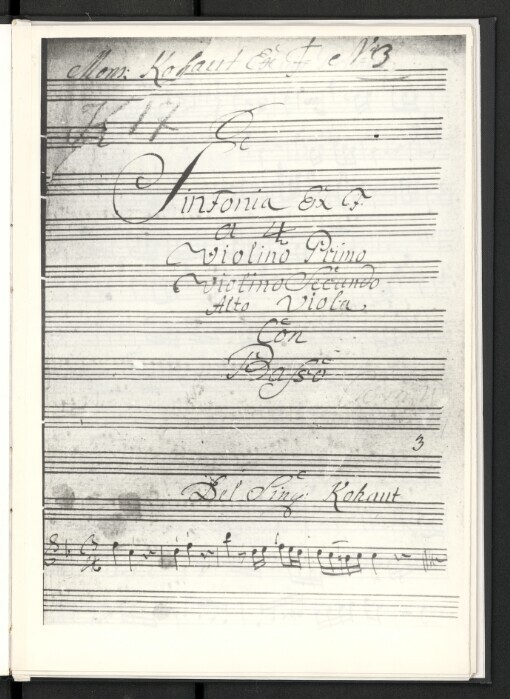 Kohaut Ex F e No 3
K 17
Sinfonia Ex F.
a 4
Violino Primo
Violino Secundo
Alto Viola.
Con
Basso
3
Del Sing: Kohaut